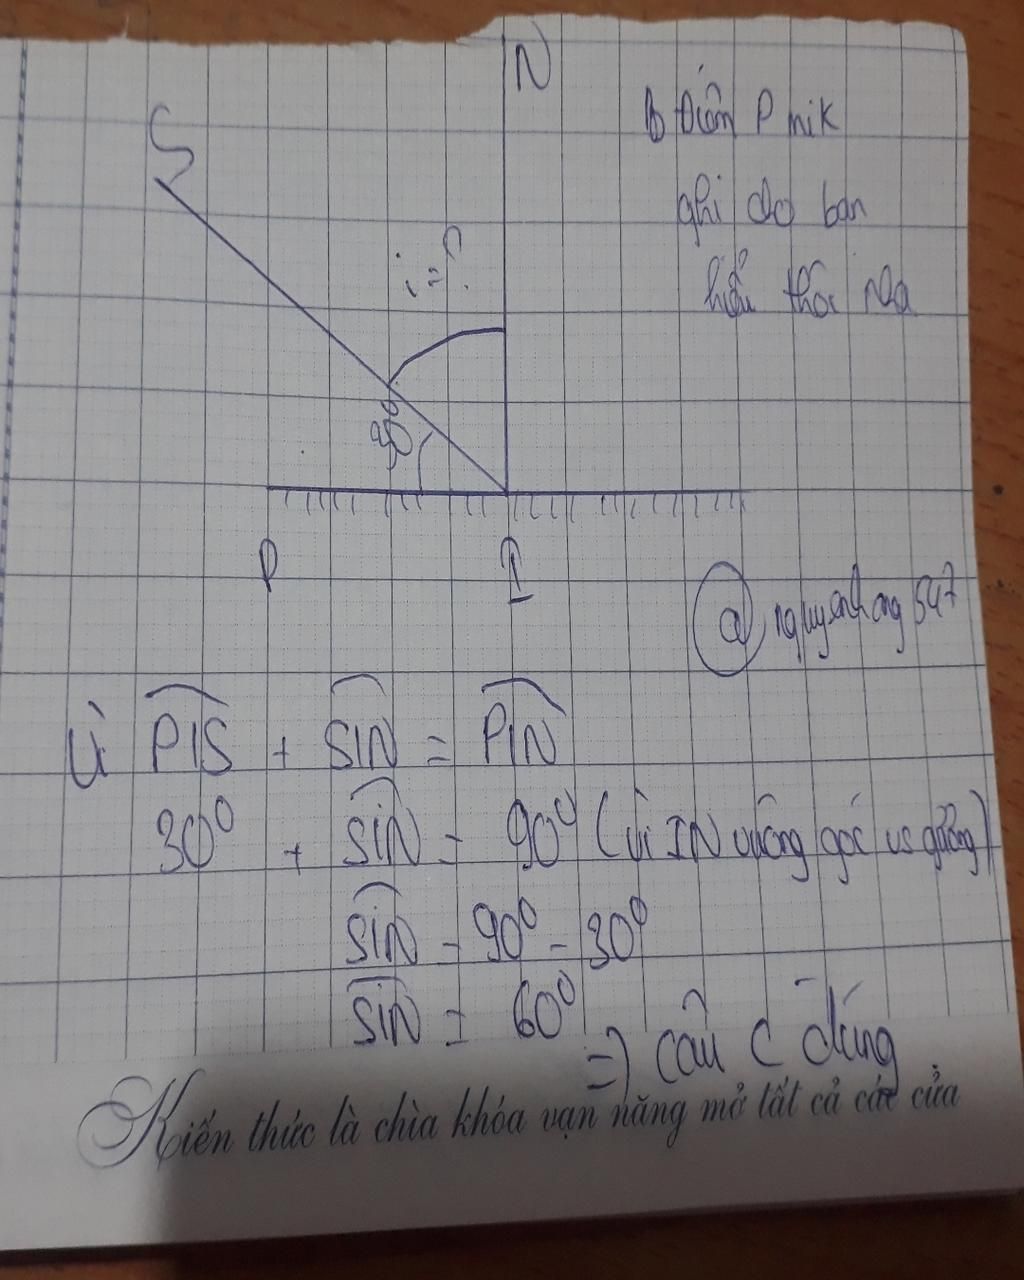 N
S
Điểm P mik
ghi cho bạn
hiểu thôi nha
i = ?
30°
P
I
@nguyenhong547
Vì PIS + SIN = PIN
30° + SIN = 90° (Vì IN vuông góc vs gương)
SIN = 90° - 30°
SIN = 60°
=> câu C đúng
Kiến thức là chìa khóa vạn năng mở tất cả các cửa